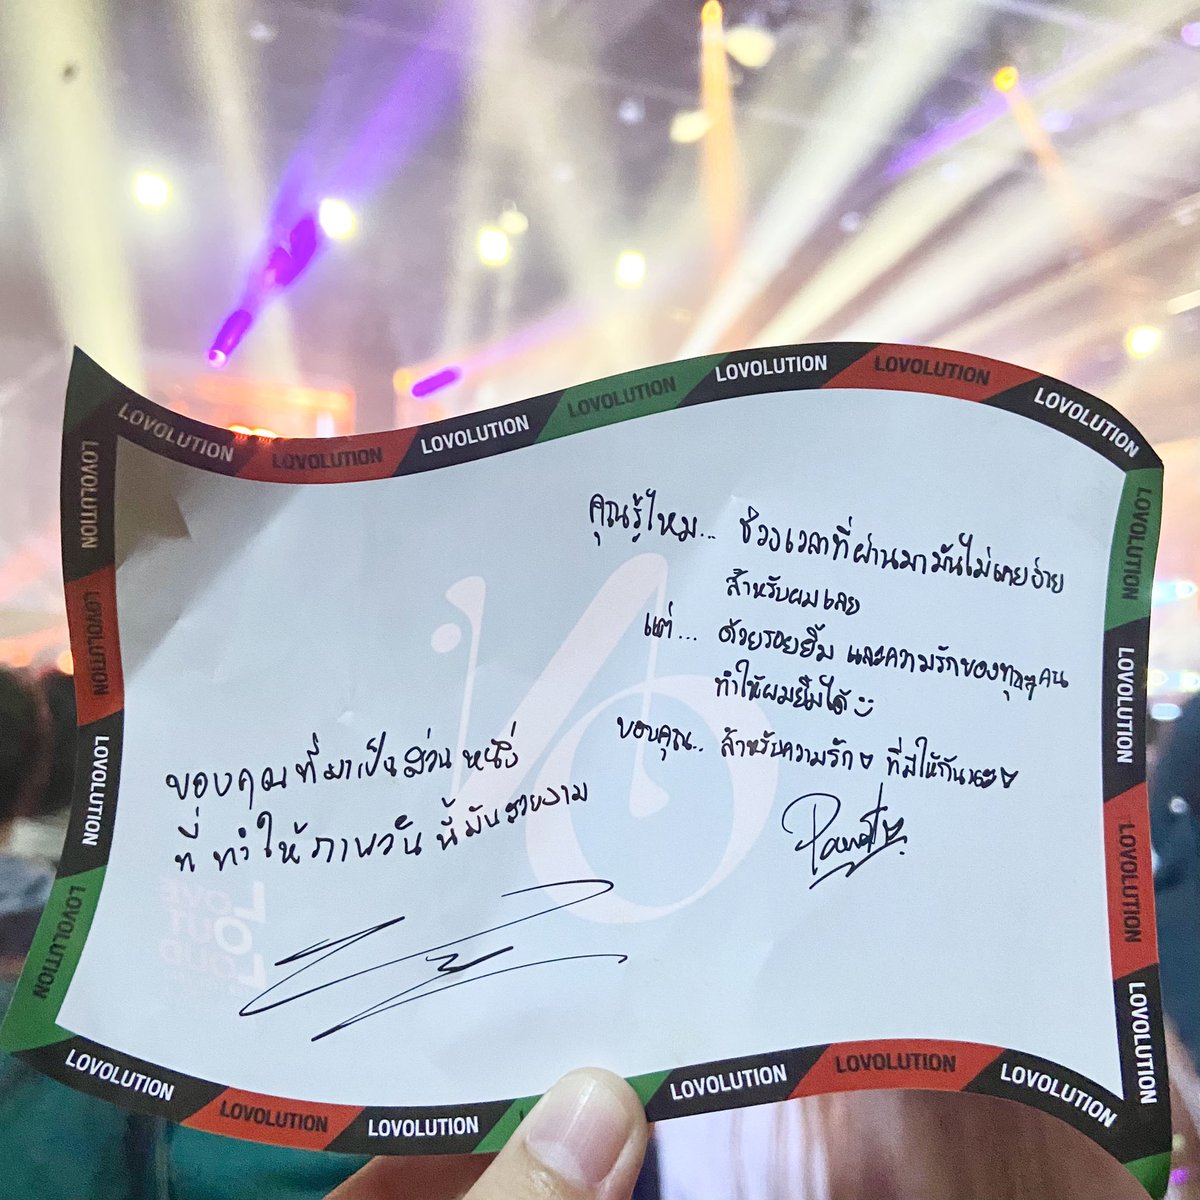 LOVOLUTION LOVOLUTION LOVOLUTION LOVOLUTION LOVOLUTION LOVOLUTION LOVOLUTION
คุณรู้ไหม... ช่วงเวลาที่ผ่านมามันไม่เคยง่าย
สำหรับผมเลย
แต่... ด้วยรอยยิ้ม และความรักของทุกๆคน
ทำให้ผมยิ้มได้
ขอบคุณ.. สำหรับความรัก ที่มีให้กันนะ
ขอบคุณที่มาเป็นส่วนหนึ่ง
ที่ทำให้ภาพวันนี้มันสวยงาม
LOVE
OUT
LOUD
LOVOLUTION
LOVOLUTION
LOVOLUTION
LOVOLUTION
LOVOLUTION
LOVOLUTION
LOVOLUTION
LOVOLUTION
LOVOLUTION LOVOLUTION LOVOLUTION LOVOLUTION LOVOLUTION LOVOLUTION